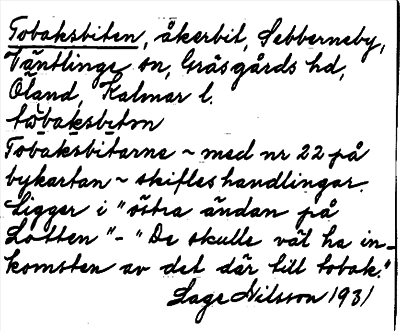 Tobaksbiten, åkerbit, Sebberneby,
Ventlinge sn, Gräsgårds hd,
Öland, Kalmar l.
tωbaksbiton
Tobaksbitarne ~ med nr 22 på
bykartan ~ skifteshandlingar.
Ligger i "östra ändan på
Lotten" - "De skulle väl ha in-
komsten av det där till tobak."
Lage Nilsson 1931